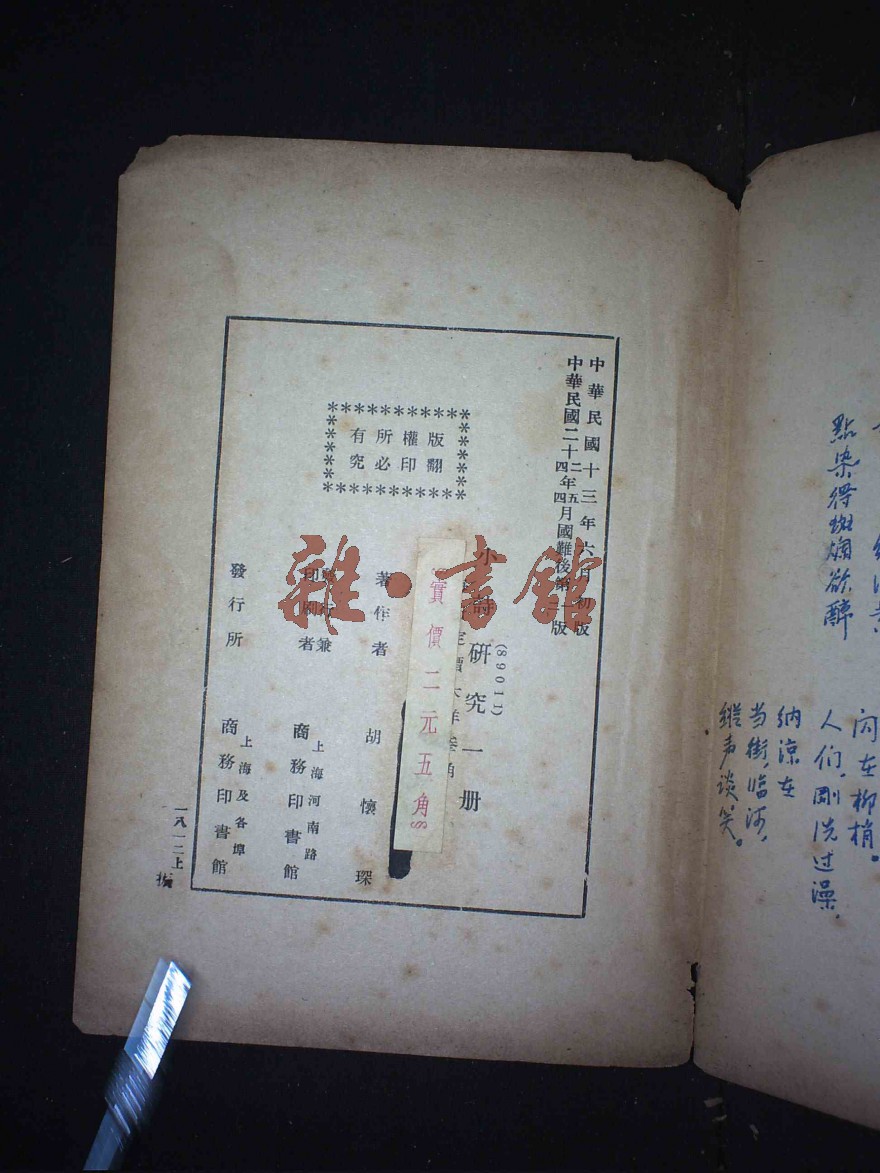 點染得斑斕欲醉
閃在柳梢。
人们,剛洗过澡,
纳凉在
当街,临河,
縱声谈笑。
中華民國十三年六月初版
中華民國二十二年五月國難後第一版
四年四
(89011)
小詩研究一册
定價大洋叁角
實價二元五角
版權所有
翻印必究
著作者
胡懷琛
發行兼
印刷者
上海河南路
商務印書館
發行所
上海及各埠
商務印書館
一八一二上
雜·書館